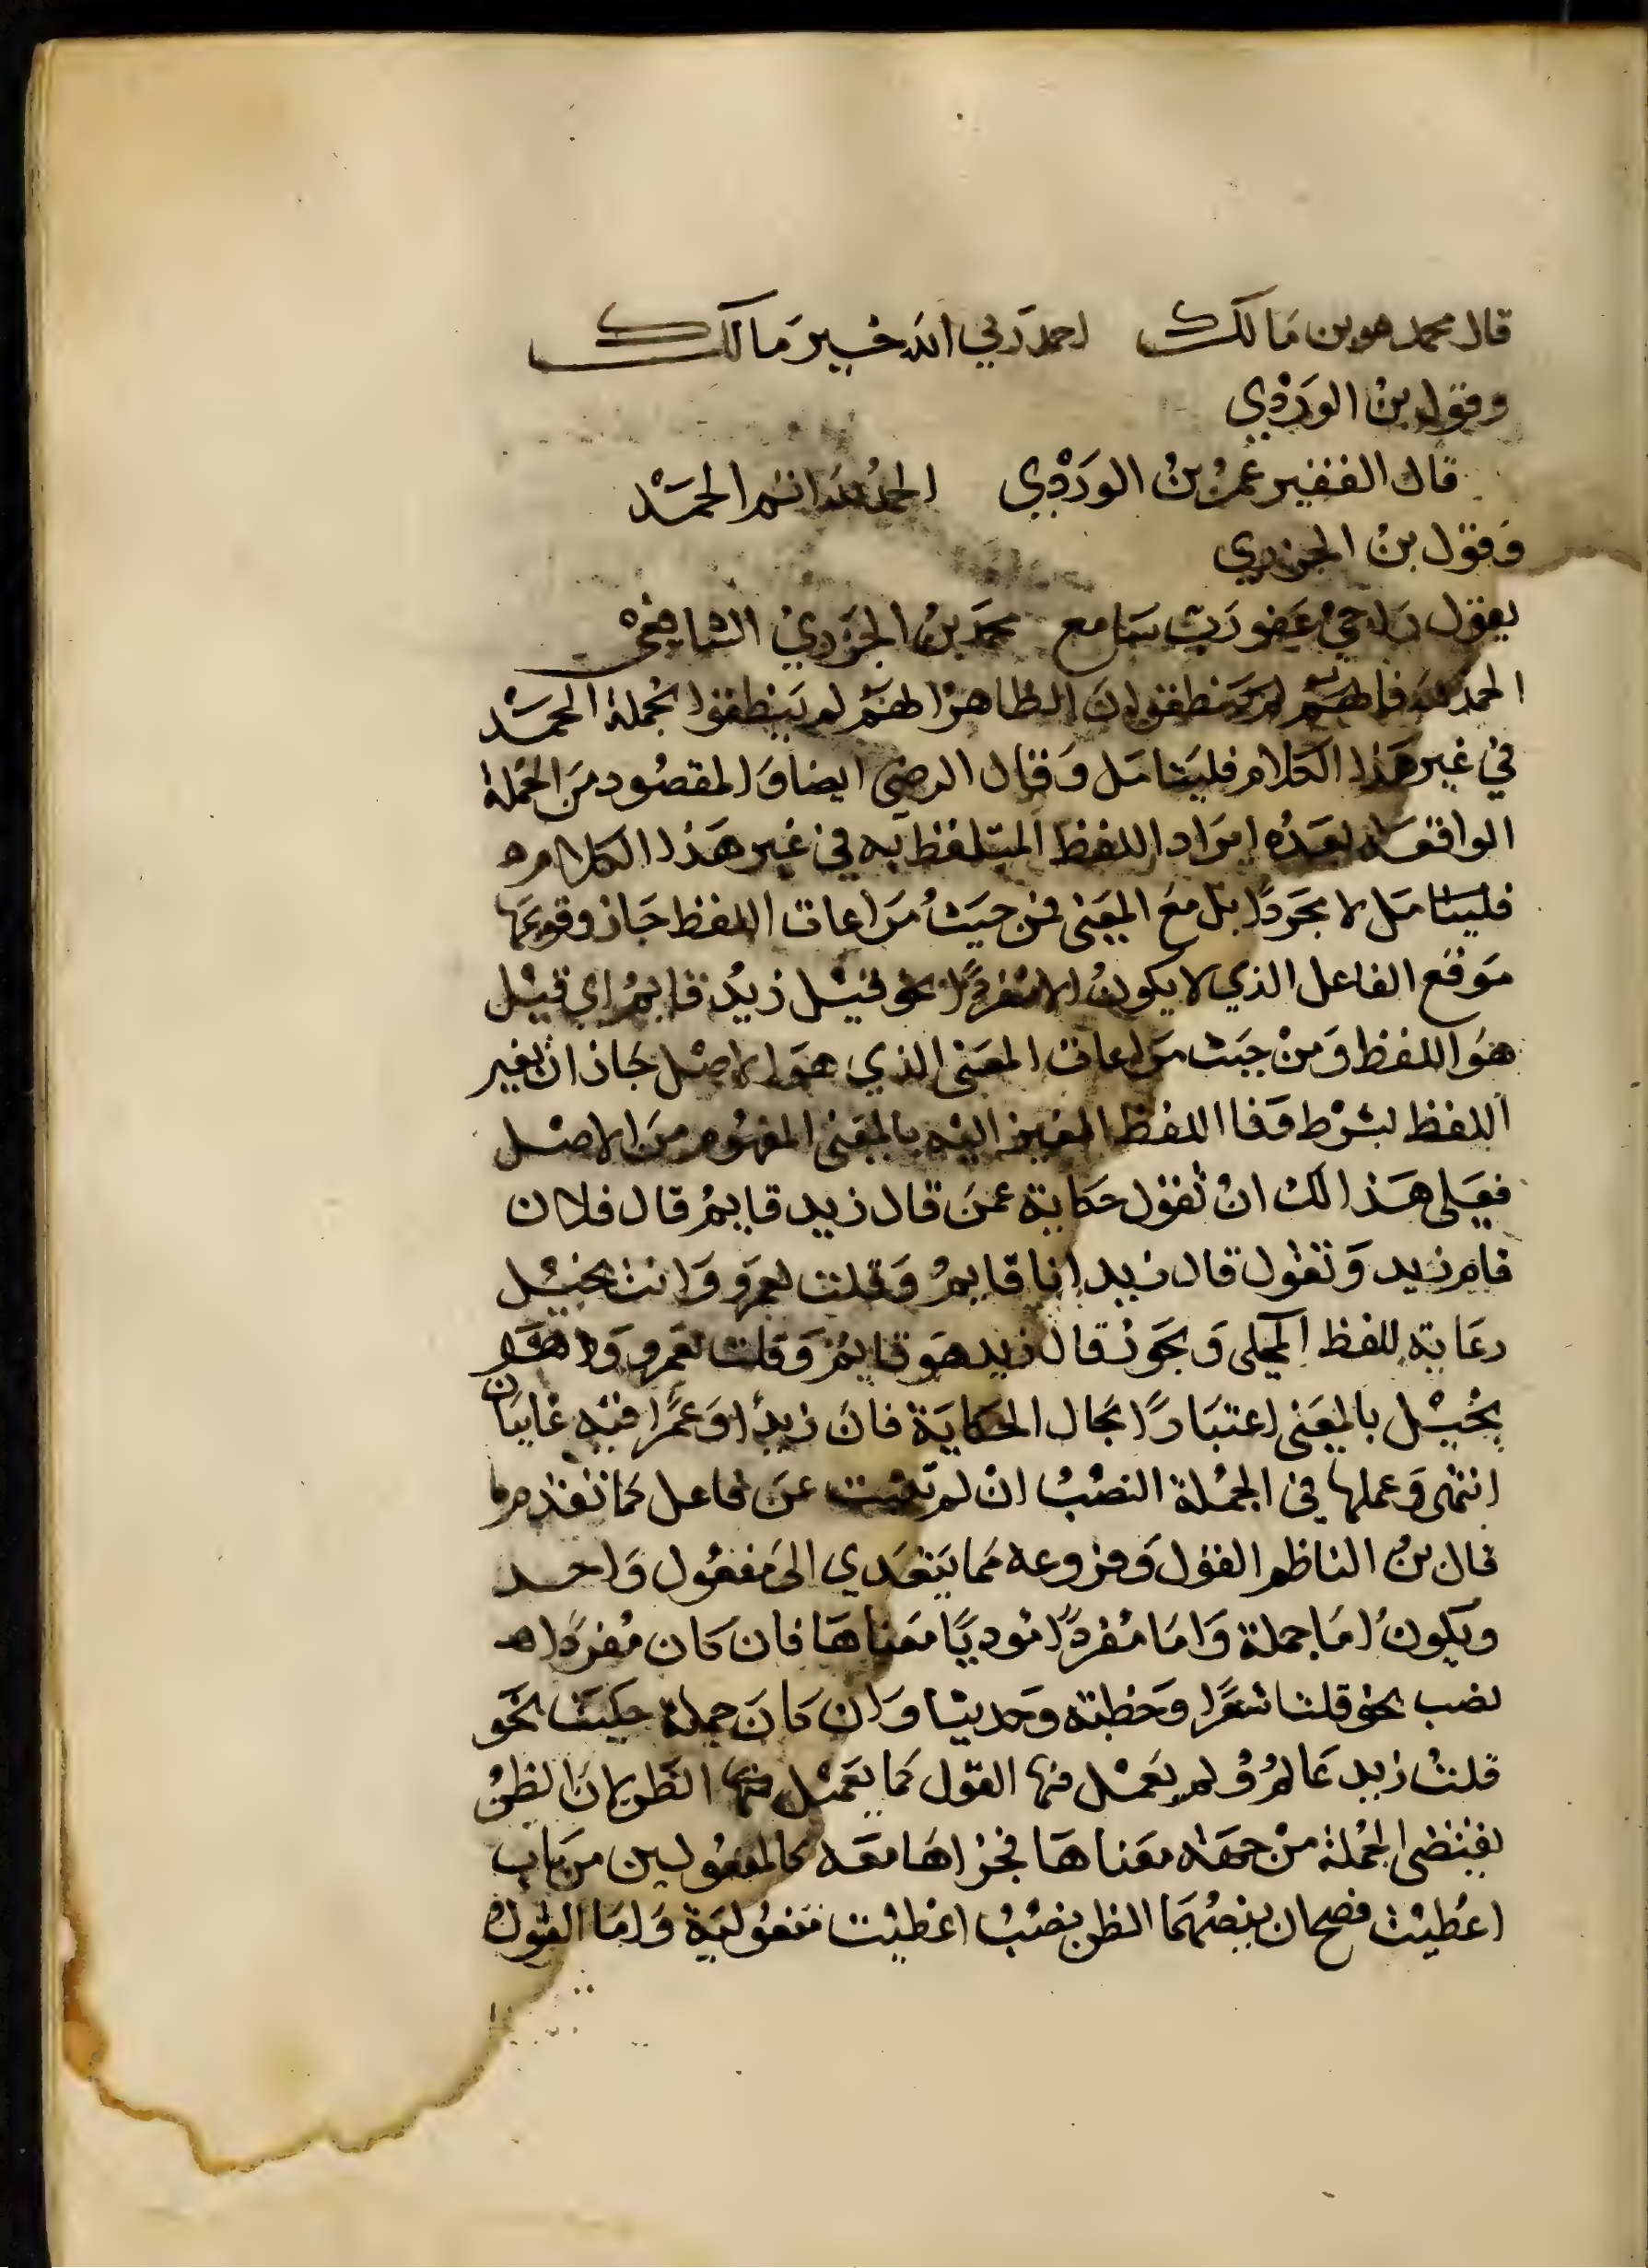 قال محمد هو بن مَالك احمد رَبي الله خير مَالك
وقول بن الوَرْدِي
قال الفقير عُمَرُ بنُ الوَرْدِي الحمدُ لله اتم الحمَدْ
وَقول بنُ الجزري
يقول رَاجي عَفو رَبٍ سَامع محمَد بنُ الجَزَرِيْ الشافِعِيْ
الحمد لله فانهم لم يَنطقوا لان الظاهر انهم لم يَنطقوا بجُملة الحمَدْ
في غير هَذا الكلام فليتامَل وَقال الرضى ايضا وَالمقصُود مَن الجملة
الواقعة بعدَه ايرَاد اللفظ المتلفظ به في غير هَذا الكلام ه
فليتامَل لا مجَردًا بل معَ المعَنى فمن حيَثُ مَراعات اللفظ جَاز وقوعَها
مَوقع الفاعل الذي لا يكونُ الا مُفردًا نحو قيْل زيدٌ قايمٌ اي قيْل
هوَ اللفظ وَمنْ حيَث مرَاعات المعَنى الذي هوَ الاصْل جَاز ان يغير
اللفظ بشرْط وَفا اللفظ المغير اليْه بالمعَنى المفهُوم مَن الاصْل
فعَلى هَذا لك انْ تقوُل حكايَة عمنَ قال زيد قايمٌ قال فلان
قام زيد وَتقوُل قال زيد انا قايمٌ وَقلت لعمرو وَانت بخيْل
رعَاية للفظ المحكى وَيجَوز قال زيد هوَ قايمٌ وَقلت لعَمرو وَهوَ
بخيْل بالمعَنى اعتبَارًا بحَال الحكايَة فان زيدًا وَعمرًا فيْه غايبَان
انتهى وَعملها في الجمْلة النصْبُ ان لم تنب عن فاعل كما تقدم
قال بن الناظم القوْل وَفروعه مَما يتَعَدي الى مَفعُول وَاحد
ويكونُ امَا جملة وَامَا مُفردًا مُوديًا مَعناهَا فان كان مُفردًا
نصب نحو قلت شعَرًا وَخطبة وَحديثا وَان كانَ جملة حكيَت نحَو
قلتُ زيد عَالمٌ وَلم يعَمْل فيها القوْل كما يعَمْل فيها الظن لانَ الظنْ
يقتضى الجُملة منْ جهَة معَناهَا فجزاهَا معَه كالمفعُولين من بَاب
اعطيْت فصح ان ينصبهمَا الظن نصْبُ اعطيْت مَفعُوليَة وَامَا القوْل